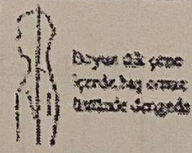 Boyun dik çene
içerde, baş omuz
üstünde dengede